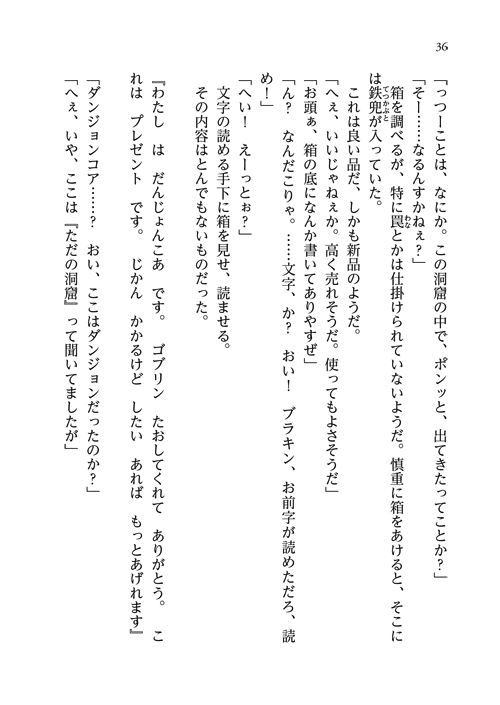 36
「っつーことは、なにか。この洞窟の中で、ポンッと、出てきたってことか?」
「そー……なるんすかねぇ?」
箱を調べるが、特に罠とかは仕掛けられていないようだ。慎重に箱をあけると、そこに
は鉄兜が入っていた。
これは良い品だ、しかも新品のようだ。
「へぇ、いいじゃねぇか。高く売れそうだ。使ってもよさそうだ」
「お頭ぁ、箱の底になんか書いてありやすぜ」
「ん? なんだこりゃ。……文字、か? おい! ブラキン、お前字が読めただろ、読
め!」
「へい! えーっとぉ?」
文字の読める手下に箱を見せ、読ませる。
その内容はとんでもないものだった。
『わたし は だんじょんこあ です。 ゴブリン たおしてくれて ありがとう。 こ
れは プレゼント です。 じかん かかるけど したい あれば もっとあげれます』
「ダンジョンコア……? おい、ここはダンジョンだったのか?」
「へぇ、いや、ここは『ただの洞窟』って聞いてましたが」